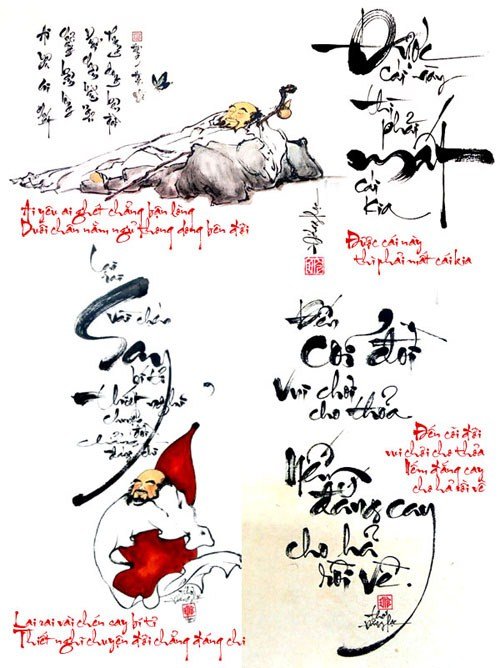 Được
cái này
thì phải
mất
cái
kia
Ai yêu ai ghét chẳng bận lòng
Duỗi chân nằm ngủ thong dong bên đời
Được cái này
thì phải mất cái kia
Lai rai
vài chén
Say
bí tỉ
thiết nghĩ
chuyện
đời
chẳng
đáng chi
Đến
cõi đời
vui chơi
cho thỏa
Nếm
đắng cay
cho hả
rồi về.
Đến cõi đời
vui chơi cho thỏa
Nếm đắng cay
cho hả rồi về
Lai rai vài chén say bí tỉ
Thiết nghĩ chuyện đời chẳng đáng chi